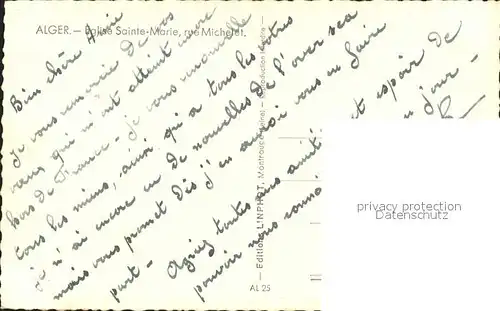 ALGER. — Eglise Sainte-Marie, rue Michelet.
Bien chère Amie
Je vous remercie de vos
vœux qui m'ont atteint encore
hors de France - Je vous renouvelle
tous les miens, ainsi qu'à tous les vôtres
Je n'ai encore eu de nouvelles de l'over sea
mais vous promet dès j'en aurai vous en faire
part -
Agréez toutes mes amitiés et espoir de
pouvoir nous un jour -
— Editions L'INPHOT, Montrouge (Seine) — Reproduction interdite —
AL 25
privacy protection
Datenschutz